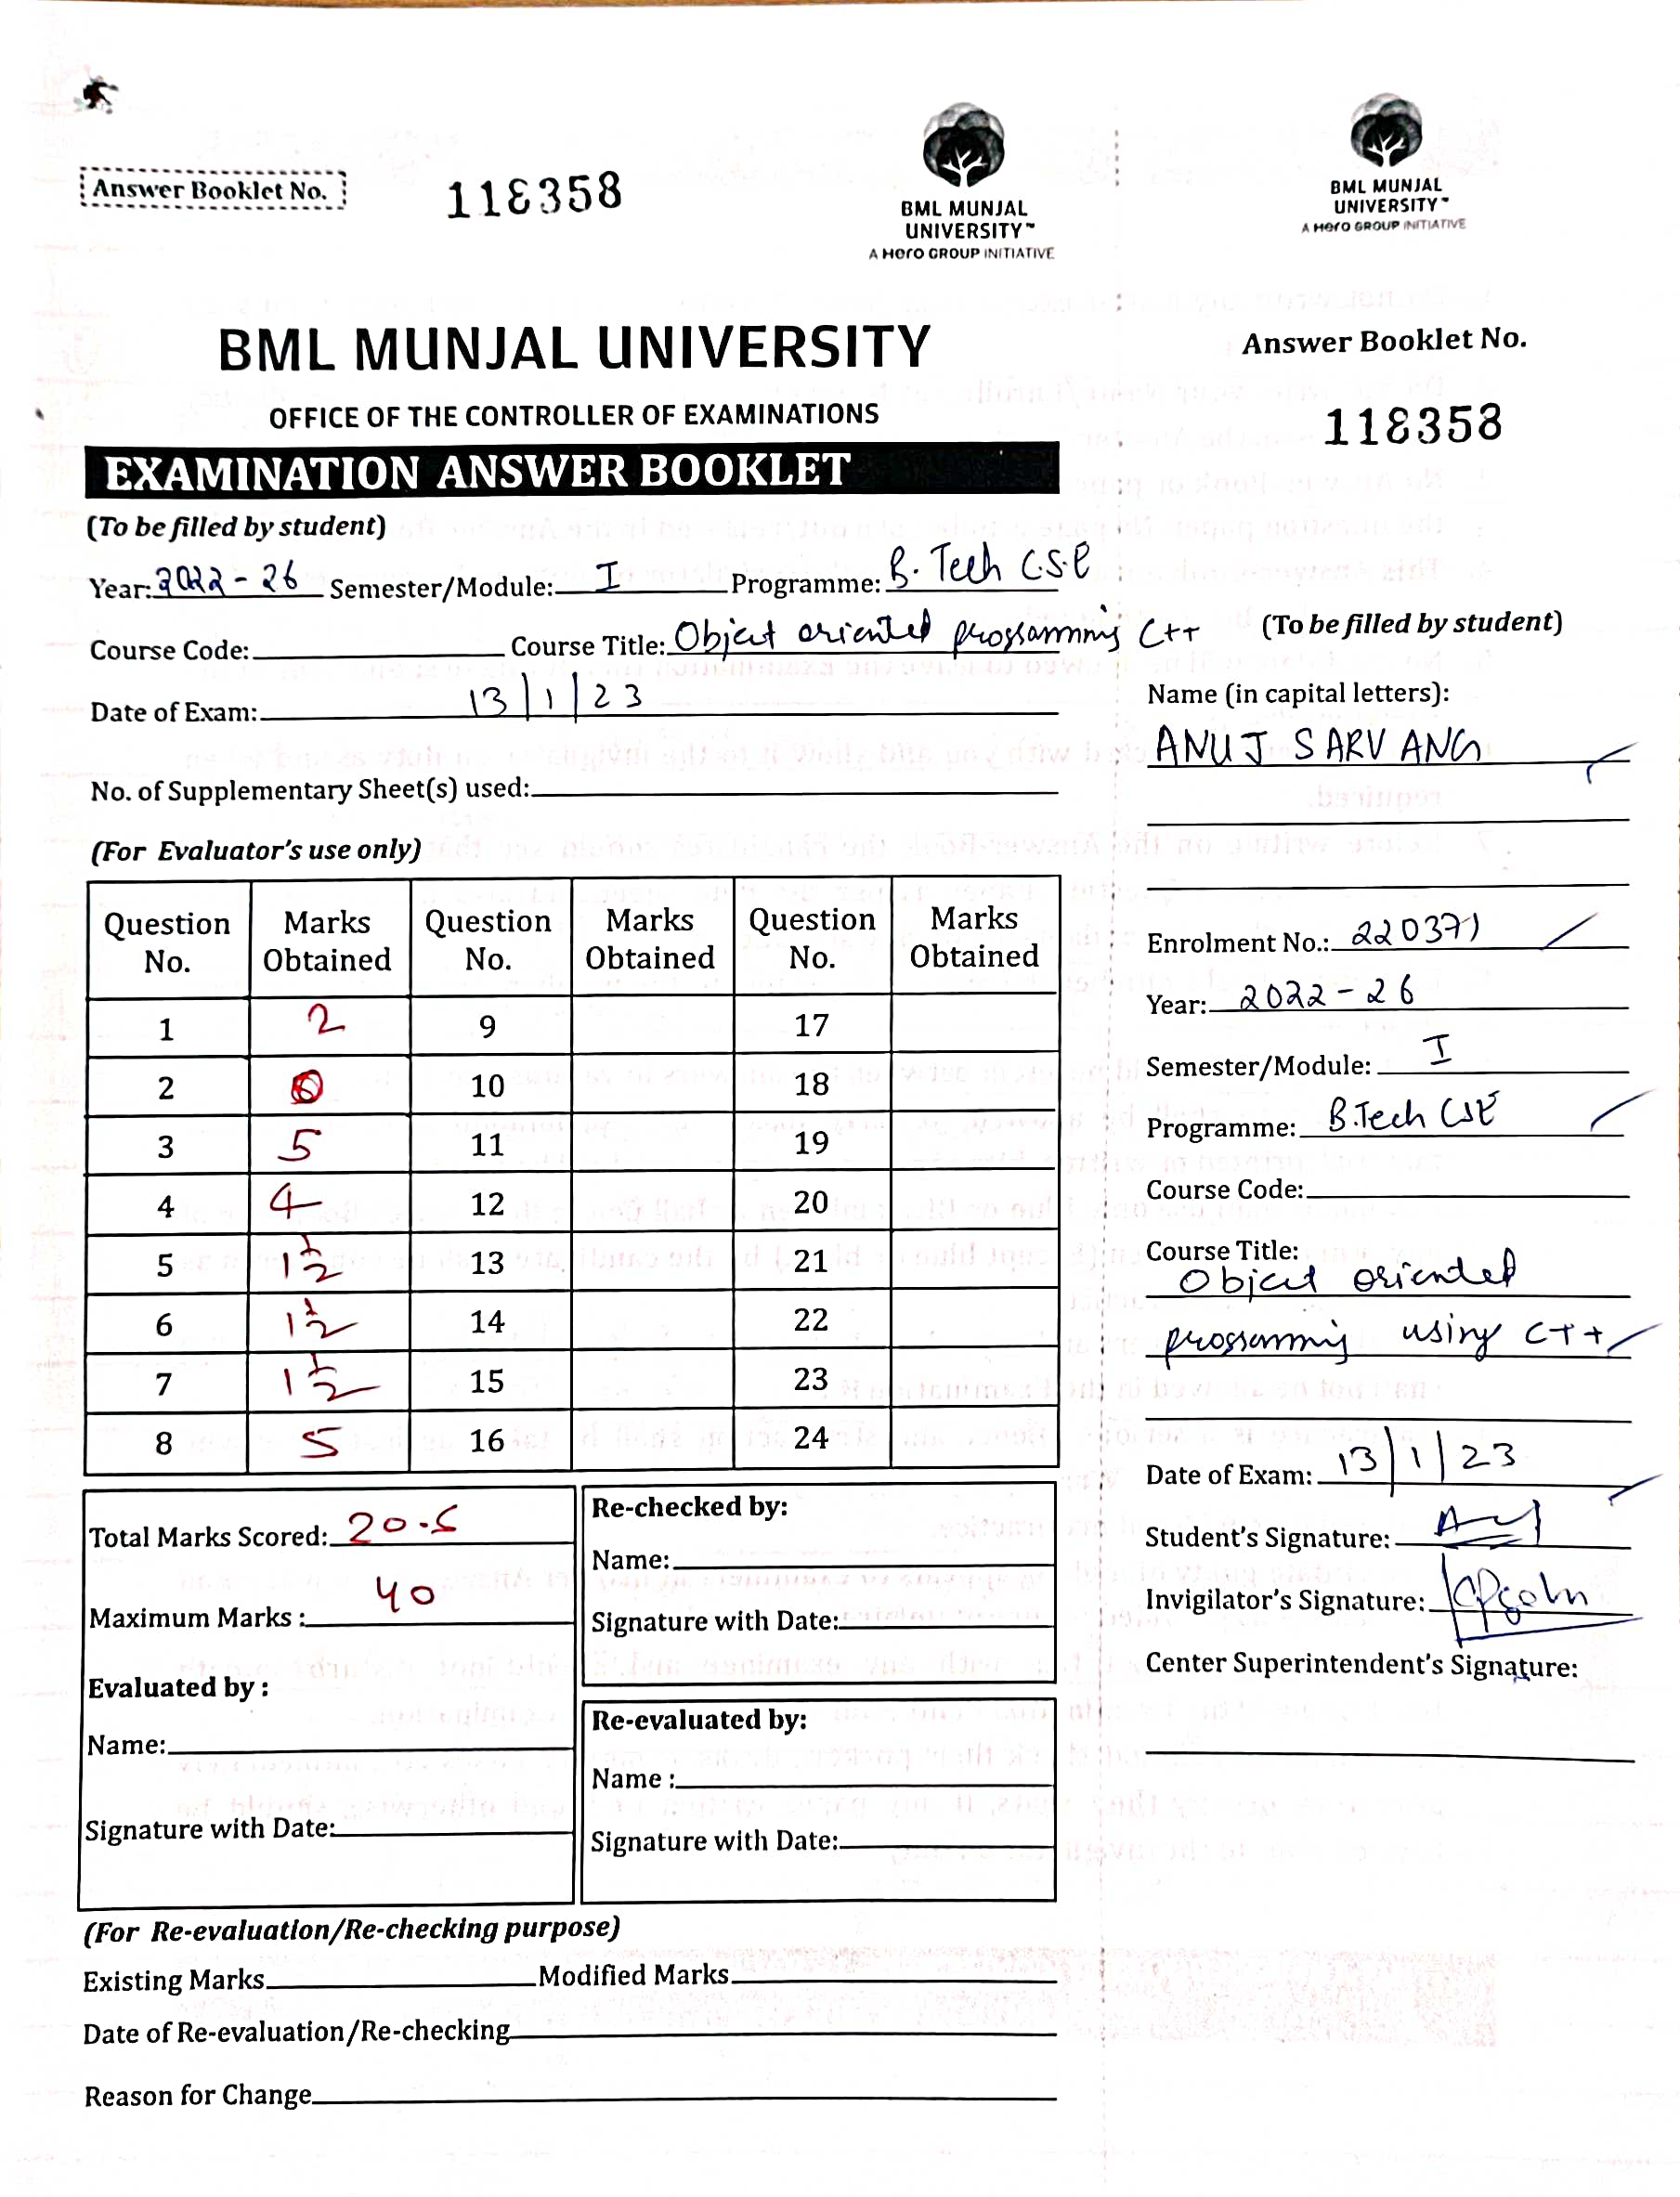 Answer Booklet No.
118358
BML MUNJAL
UNIVERSITY™
A Hero GROUP INITIATIVE
BML MUNJAL UNIVERSITY
OFFICE OF THE CONTROLLER OF EXAMINATIONS
EXAMINATION ANSWER BOOKLET
(To be filled by student)
Year: 2022-26 Semester/Module: I Programme: B. Tech C.S.E
Course Code: Course Title: Object oriented programming C++
Date of Exam: 13/1/23
No. of Supplementary Sheet(s) used:
(For Evaluator's use only)
Question No. Marks Obtained Question No. Marks Obtained Question No. Marks Obtained
1 2 9 17
2 10 18
3 5 11 19
4 4 12 20
5 1½ 13 21
6 1½ 14 22
7 1½ 15 23
8 5 16 24
Total Marks Scored: 20.5
Maximum Marks : 40
Evaluated by :
Name:
Signature with Date:
Re-checked by:
Name:
Signature with Date:
Re-evaluated by:
Name :
Signature with Date:
(For Re-evaluation/Re-checking purpose)
Existing Marks Modified Marks
Date of Re-evaluation/Re-checking
Reason for Change
BML MUNJAL
UNIVERSITY™
A Hero GROUP INITIATIVE
Answer Booklet No.
118358
(To be filled by student)
Name (in capital letters):
ANUJ SARVANG
Enrolment No.: 220371
Year: 2022-26
Semester/Module: I
Programme: B.Tech CSE
Course Code:
Course Title:
Object oriented
programming using C++
Date of Exam: 13/1/23
Student's Signature:
Invigilator's Signature:
Center Superintendent's Signature: